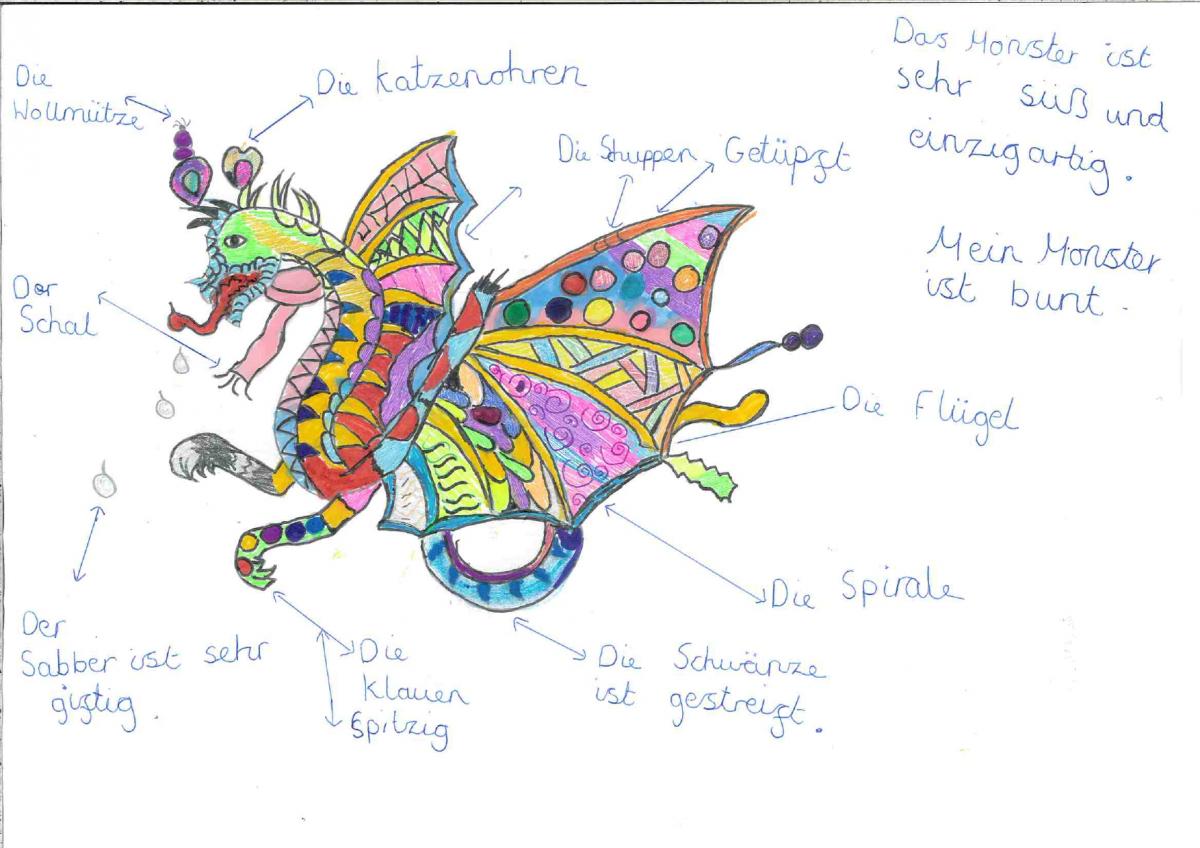 Das Monster ist
sehr süß und
einzigartig.
Mein Monster
ist bunt.
Die
Wollmütze
Die Katzenohren
Die Schuppen
Getüpft
Der
Schal
Die Flügel
Die Spirale
Der
Sabber ist sehr
giftig.
Die
Klauen
Spitzig
Die Schwänze
ist gestreift.